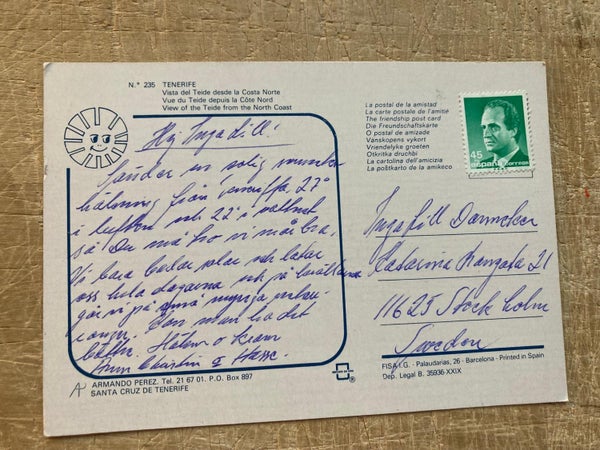 N.° 235 TENERIFE
Vista del Teide desde la Costa Norte
Vue du Teide depuis la Côte Nord
View of the Teide from the North Coast
Hej Ingagill!
Sänder en solig
hälsning från 27°
i luften och 22° i vattnet
så Du må tro vi må bra,
Vi bara badar solar och latar
oss hela dagarna och på kvällarna
går vi på mysiga
Kan man ha det
bättre. Hälsn o Kram
Ann Christin & Hasse.
ARMANDO PEREZ. Tel. 21 67 01. P.O. Box 897
SANTA CRUZ DE TENERIFE
La postal de la amistad
La carte postale de l'amitié
The friendship post card
Die Freundschaftskarte
O postal de amizade
Vanskopens vykort
Vriendelyke groeten
Otkritka druchbi
La cartolina dell'amicizia
La poŝtkarto de la amikeco
45
españa correos
Ingagill
Katarina Bangata 21
11625 Stockholm
Sweden
FISA I.G. - Palaudarias, 26 - Barcelona - Printed in Spain
Dep. Legal B. 35936-XXIX